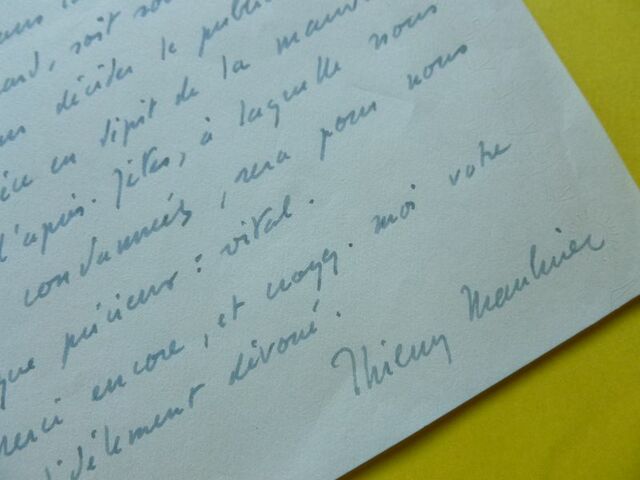 soit
décider le public
en dépit de la mauv
d'après-fêtes, à laquelle nous
condamnés, sera pour nous
que précieux : vital.
merci encore, et croyez-moi votre
fidèlement dévoué.
Thierry Maulnier